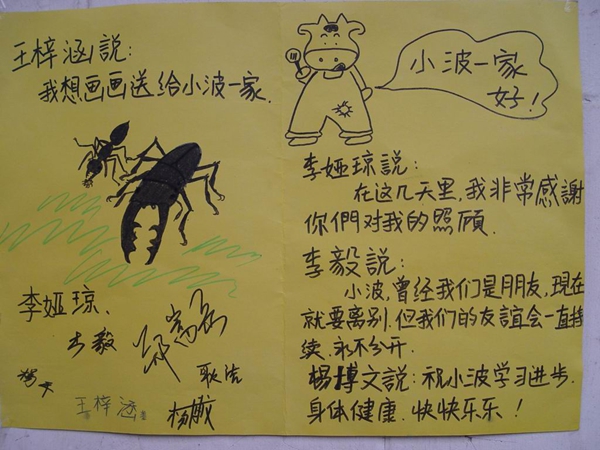 王梓涵説:
我想画画送给小波一家.
李娅琼、
李毅
耿洁
王梓涵
杨敏
小波一家
好!
李娅琼説:
在这几天里,我非常感謝
你們对我的照顾.
李毅説:
小波,曾经我们是朋友,現在
就要离别.但我们的友誼会一直持
续.永不分开.
杨博文説:祝小波学习进步.
身体健康.快快乐乐!